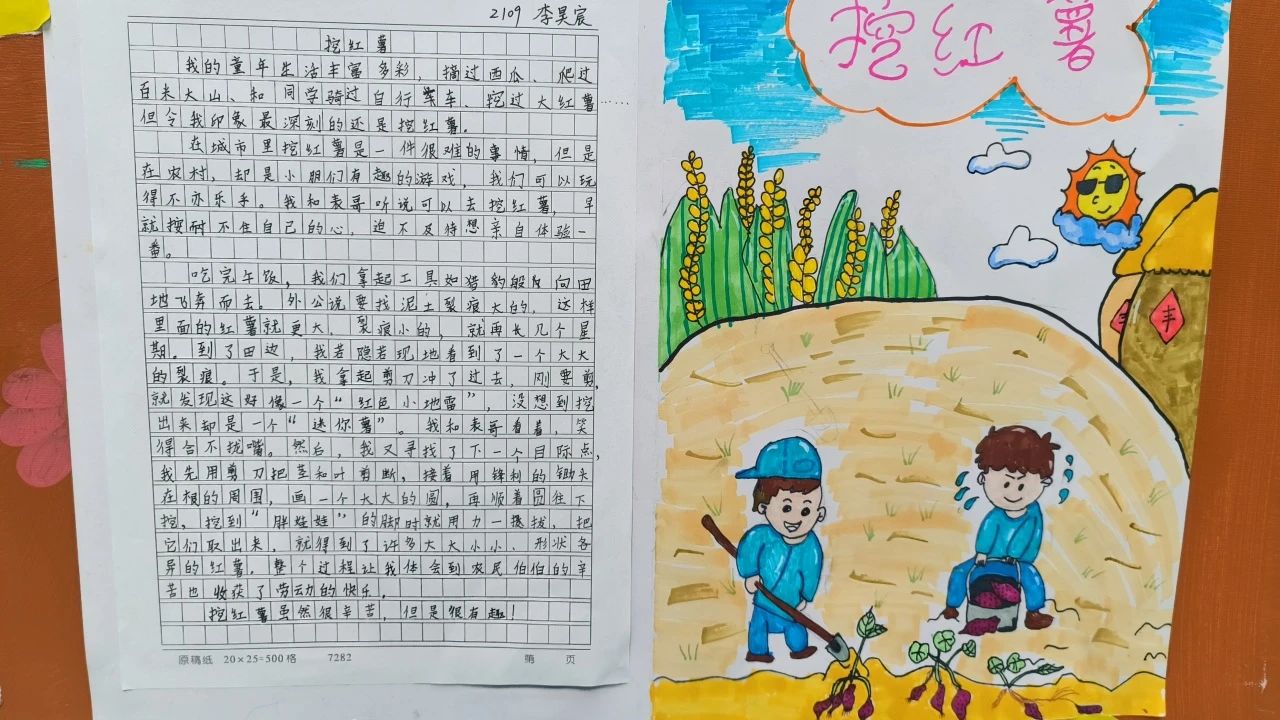 2109 李昊宸
挖红薯
我的童年生活丰富多彩，摘过西瓜、爬过
百米大山、和同学骑过自行车、挖过大红薯……
但令我印象最深刻的还是挖红薯。
在城市里挖红薯是一件很难的事情，但是
在农村，却是小朋们有趣的游戏，我们可以玩
得不亦乐乎。我和表哥听说可以去挖红薯，早
就按耐不住自己的心，迫不及待想亲自体验一
番。
吃完午饭，我们拿起工具如猎豹般向田
地飞奔而去。外公说要找泥土裂痕大的，这样
里面的红薯就更大，裂痕小的，就再长几个星
期。到了田边，我若隐若现地看到了一个大大
的裂痕。于是，我拿起剪刀冲了过去，刚要剪，
就发现这好像一个“红色小地雷”，没想到挖
出来却是一个“迷你薯”。我和表哥看着，笑
得合不拢嘴。然后，我又寻找了下一个目际点，
我先用剪刀把茎和叶剪断，接着用锋利的锄头
在根的周围，画一个大大的圆，再顺着圆往下
挖，挖到“胖娃娃”的脚时就用力一拔，把
它们取出来，就得到了许多大大小小、形状各
异的红薯，整个过程让我体会到农民伯伯的辛
苦也收获了劳动的快乐。
挖红薯虽然很辛苦，但是很有趣！
原稿纸 20×25=500格 7282 第 页
挖红薯
丰
丰